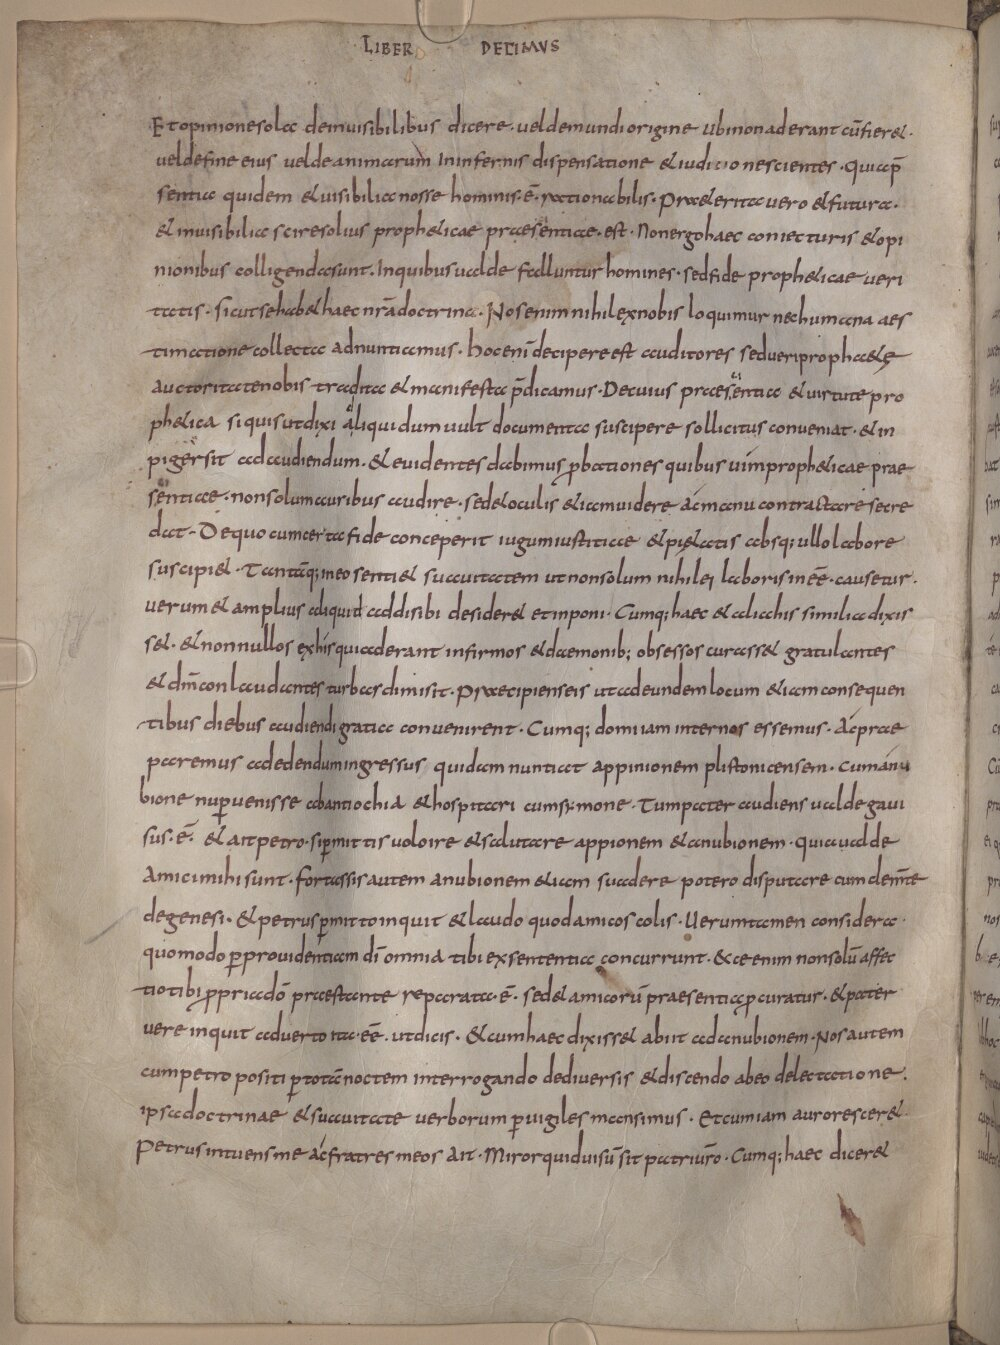 LIBER DECIMVS
Et opinione sola de invisibilibus dicere · vel de mundi origine ubi non aderant cū fieret ·
vel de fine eius vel de animarum In infernis dispensatione et iuditio nescientes · Quia p̄
sentia quidem et visibilia nosse hominis · ē · rationabilis · Præterita vero et futura ·
et invisibilia scire solius propheticae præsentiae · est · Non ergo haec coniecturis et opi
nionibus colligenda sunt · In quibus valde falluntur homines · sed fide propheticae veri
tatis · sicut se habet haec nr̄a doctrina · Nos enim nihil ex nobis loquimur nec humana aes
timatione collecta adnuntiamus · hoc enī decipere est auditores sed veri prophaetę
auctoritate nobis tradita et manifesta p̄dicamus · De cuius praesentia et virtute pro
phetica si quis ut dixi aliquid um vult documenta suscipere sollicitus conveniat · et in
piger sit ad audiendum · et evidentes dabimus ꝓbationes quibus vim propheticae prae
sentiae · non solum auribus audire · sed et oculis etiam videre ac manu contractare se cre
dat · De quo cum certa fide conceperit iugum iustitiae et pietatis absq; ullo labore
suscipiet · Tantāq; in eo sentiet suavitatem ut non solum nihil ei laboris inēē · causetur ·
verum et amplius aliquid addi sibi desideret et inponi · Cumq; haec et alia his similia dixis
set · et non nullos ex his qui aderant infirmos et daemonib; obsessos curasset gratulantes
et dm̄ conlaudantes turbas dimisit · Præcipiens eis ut ad eundem locum etiam consequen
tibus diebus audiendi gratia convenirent · Cumq; domi iam inter nos essemus · Ac prae
pararemus ad edendum ingressus quidam nuntiat appinionem plistonicensem · cum anu
bione nuꝑ venisse ab antiochia et hospitari cum symone · Tum pater audiens valde gavi
sus · ē · et ait petro · si ꝑmittis volo ire et salutare appionem et anubionem · quia valde
Amici mihi sunt · fortassis autem anubionem etiam suadere potero disputare cum clem̄te
de genesi · et petrus ꝑmitto inquit et laudo quod amicos colis · Verum tamen considera ·
quomodo ꝑ providentiam dī omnia tibi ex sententia concurrunt · Ecce enim non solū affec
tio tibi ꝓpria dō praestante reparata · ē · sed et amicorū praesentia ꝓcuratur · et pater
vere inquit adverto ita · ēē · ut dicis · et cum haec dixisset abiit ad anubionem · Nos autem
cum petro positi ꝑ totā noctem interrogando de diversis et discendo ab eo delectatione ·
ipsa doctrinae et suavitate verborum ꝑvigiles mansimus · Et cum iam auroresceret
Petrus intuens me ac fratres meos Ait · Miror quid visū sit patri vr̄o · Cumq; haec diceret